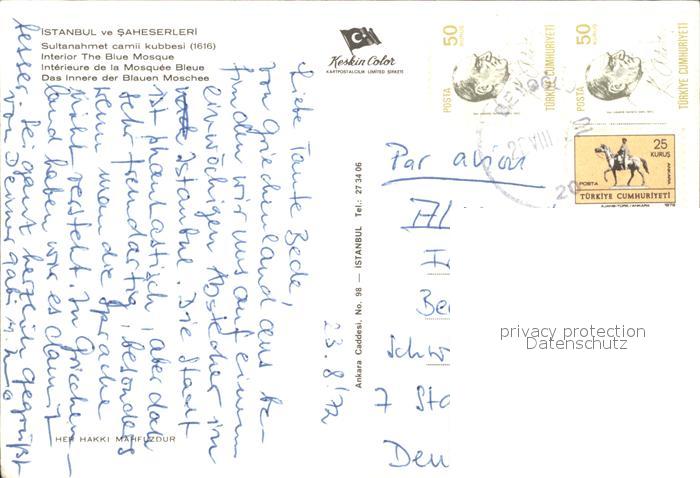 İSTANBUL ve ŞAHESERLERİ
Sultanahmet camii kubbesi (1616)
Interior The Blue Mosque
Intérieure de la Mosquée Bleue
Das Innere der Blauen Moschee
Keskin Color
KARTPOSTALCILIK LIMITED ŞİRKETİ
Ankara Caddesi, No. 98 — İSTANBUL Tel.: 27 34 06
HER HAKKI MAHFUZDUR
23.8.72
Liebe Tante Bede,
von Griechenland aus be-
finden wir uns auf einem
einwöchigen Abstecher in
Istanbul. Die Stadt
ist phantastisch, aber doch
sehr fremdartig, besonders
wenn man die Sprache
nicht versteht. In Griechen-
land haben wir es damit
besser. Sei ganz herzlich gegrüßt
von Deiner
Par avion
Schw
7 St
Deu
50
KURUŞ
POSTA
TÜRKİYE CUMHURİYETİ
50
KURUŞ
POSTA
TÜRKİYE CUMHURİYETİ
25
KURUŞ
ANKARA
POSTA
TÜRKİYE CUMHURİYETİ
VIII
20
privacy protection
Datenschutz